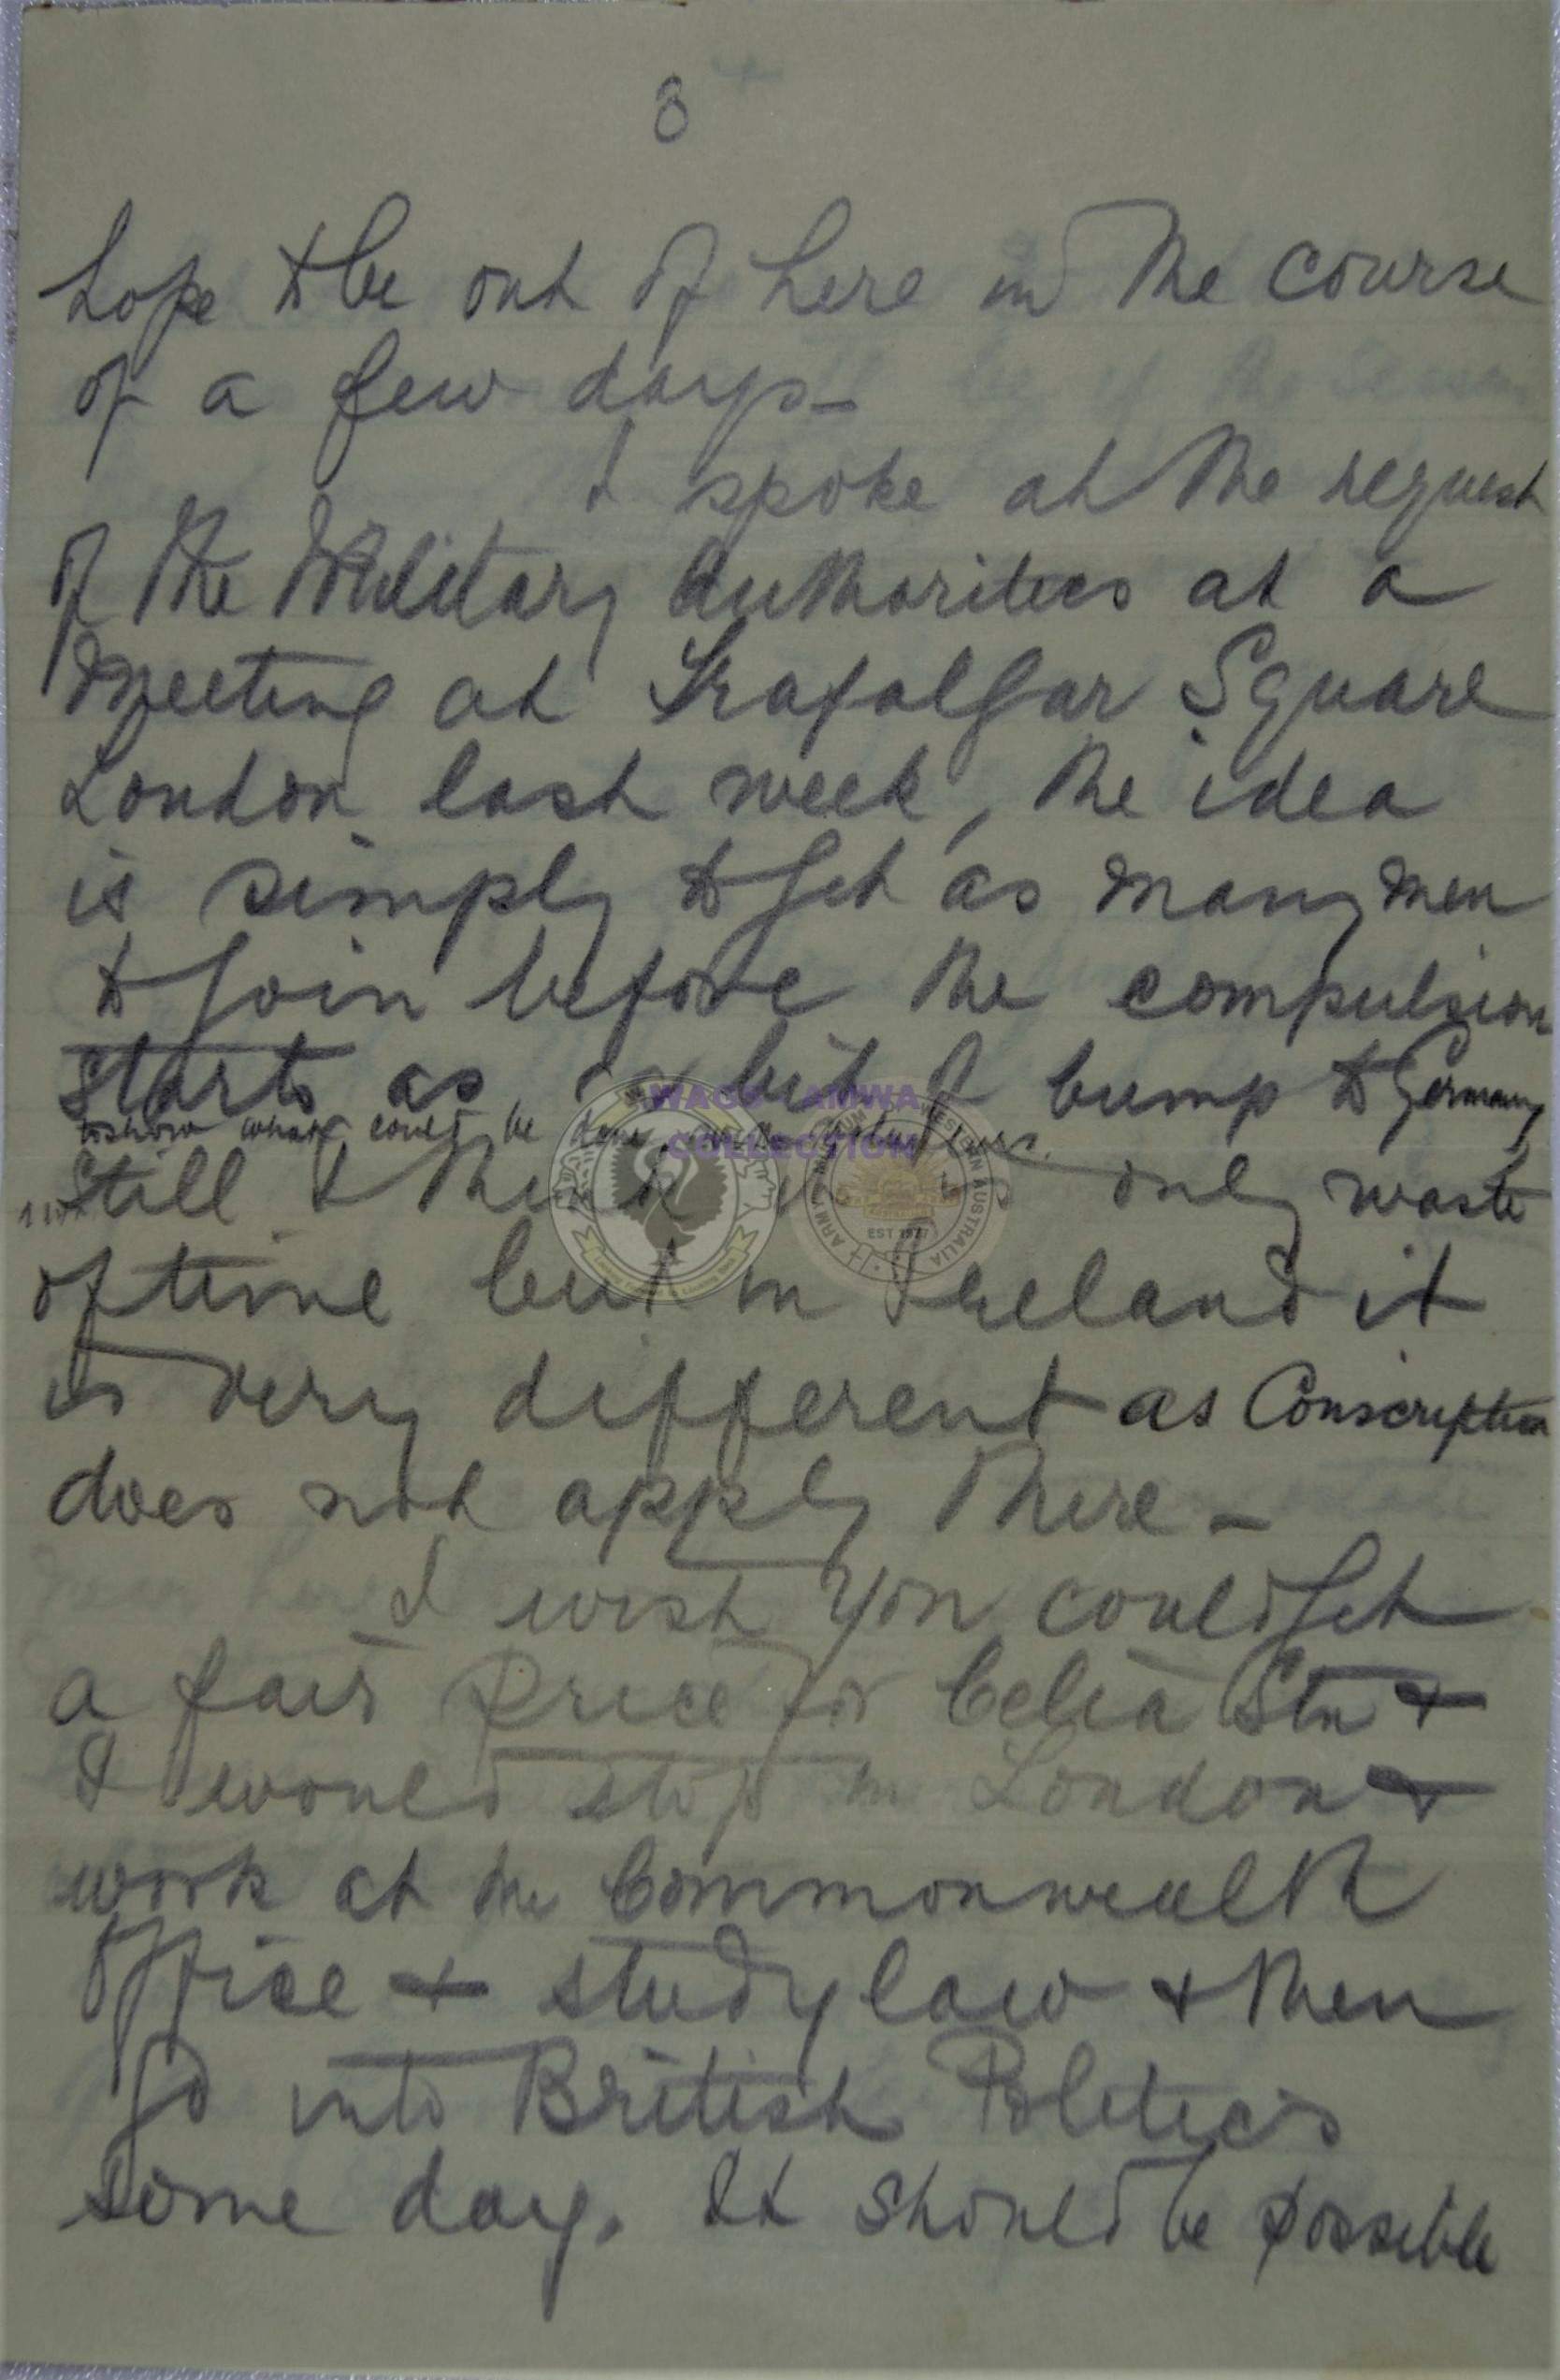 8
hope to be out of here in the course
of a few days –
I spoke at the request
of the Military Authorities at a
meeting at Trafalgar Square
London last week, the idea
is simply to get as many men
to join before the compulsion
starts as a bit of bump to Germany
to show what could be done
Still I think it is only waste
of time but in Ireland it
is very different as Conscription
does not apply there –
I wish you could get
a fair price for Celia Stn &
I would stop in London &
work at the Commonwealth
Office & study law & then
go into British Politics
some day. It should be possible
WAGS AMWA
COLLECTION
ARMY MUSEUM OF WESTERN AUSTRALIA
EST 1977